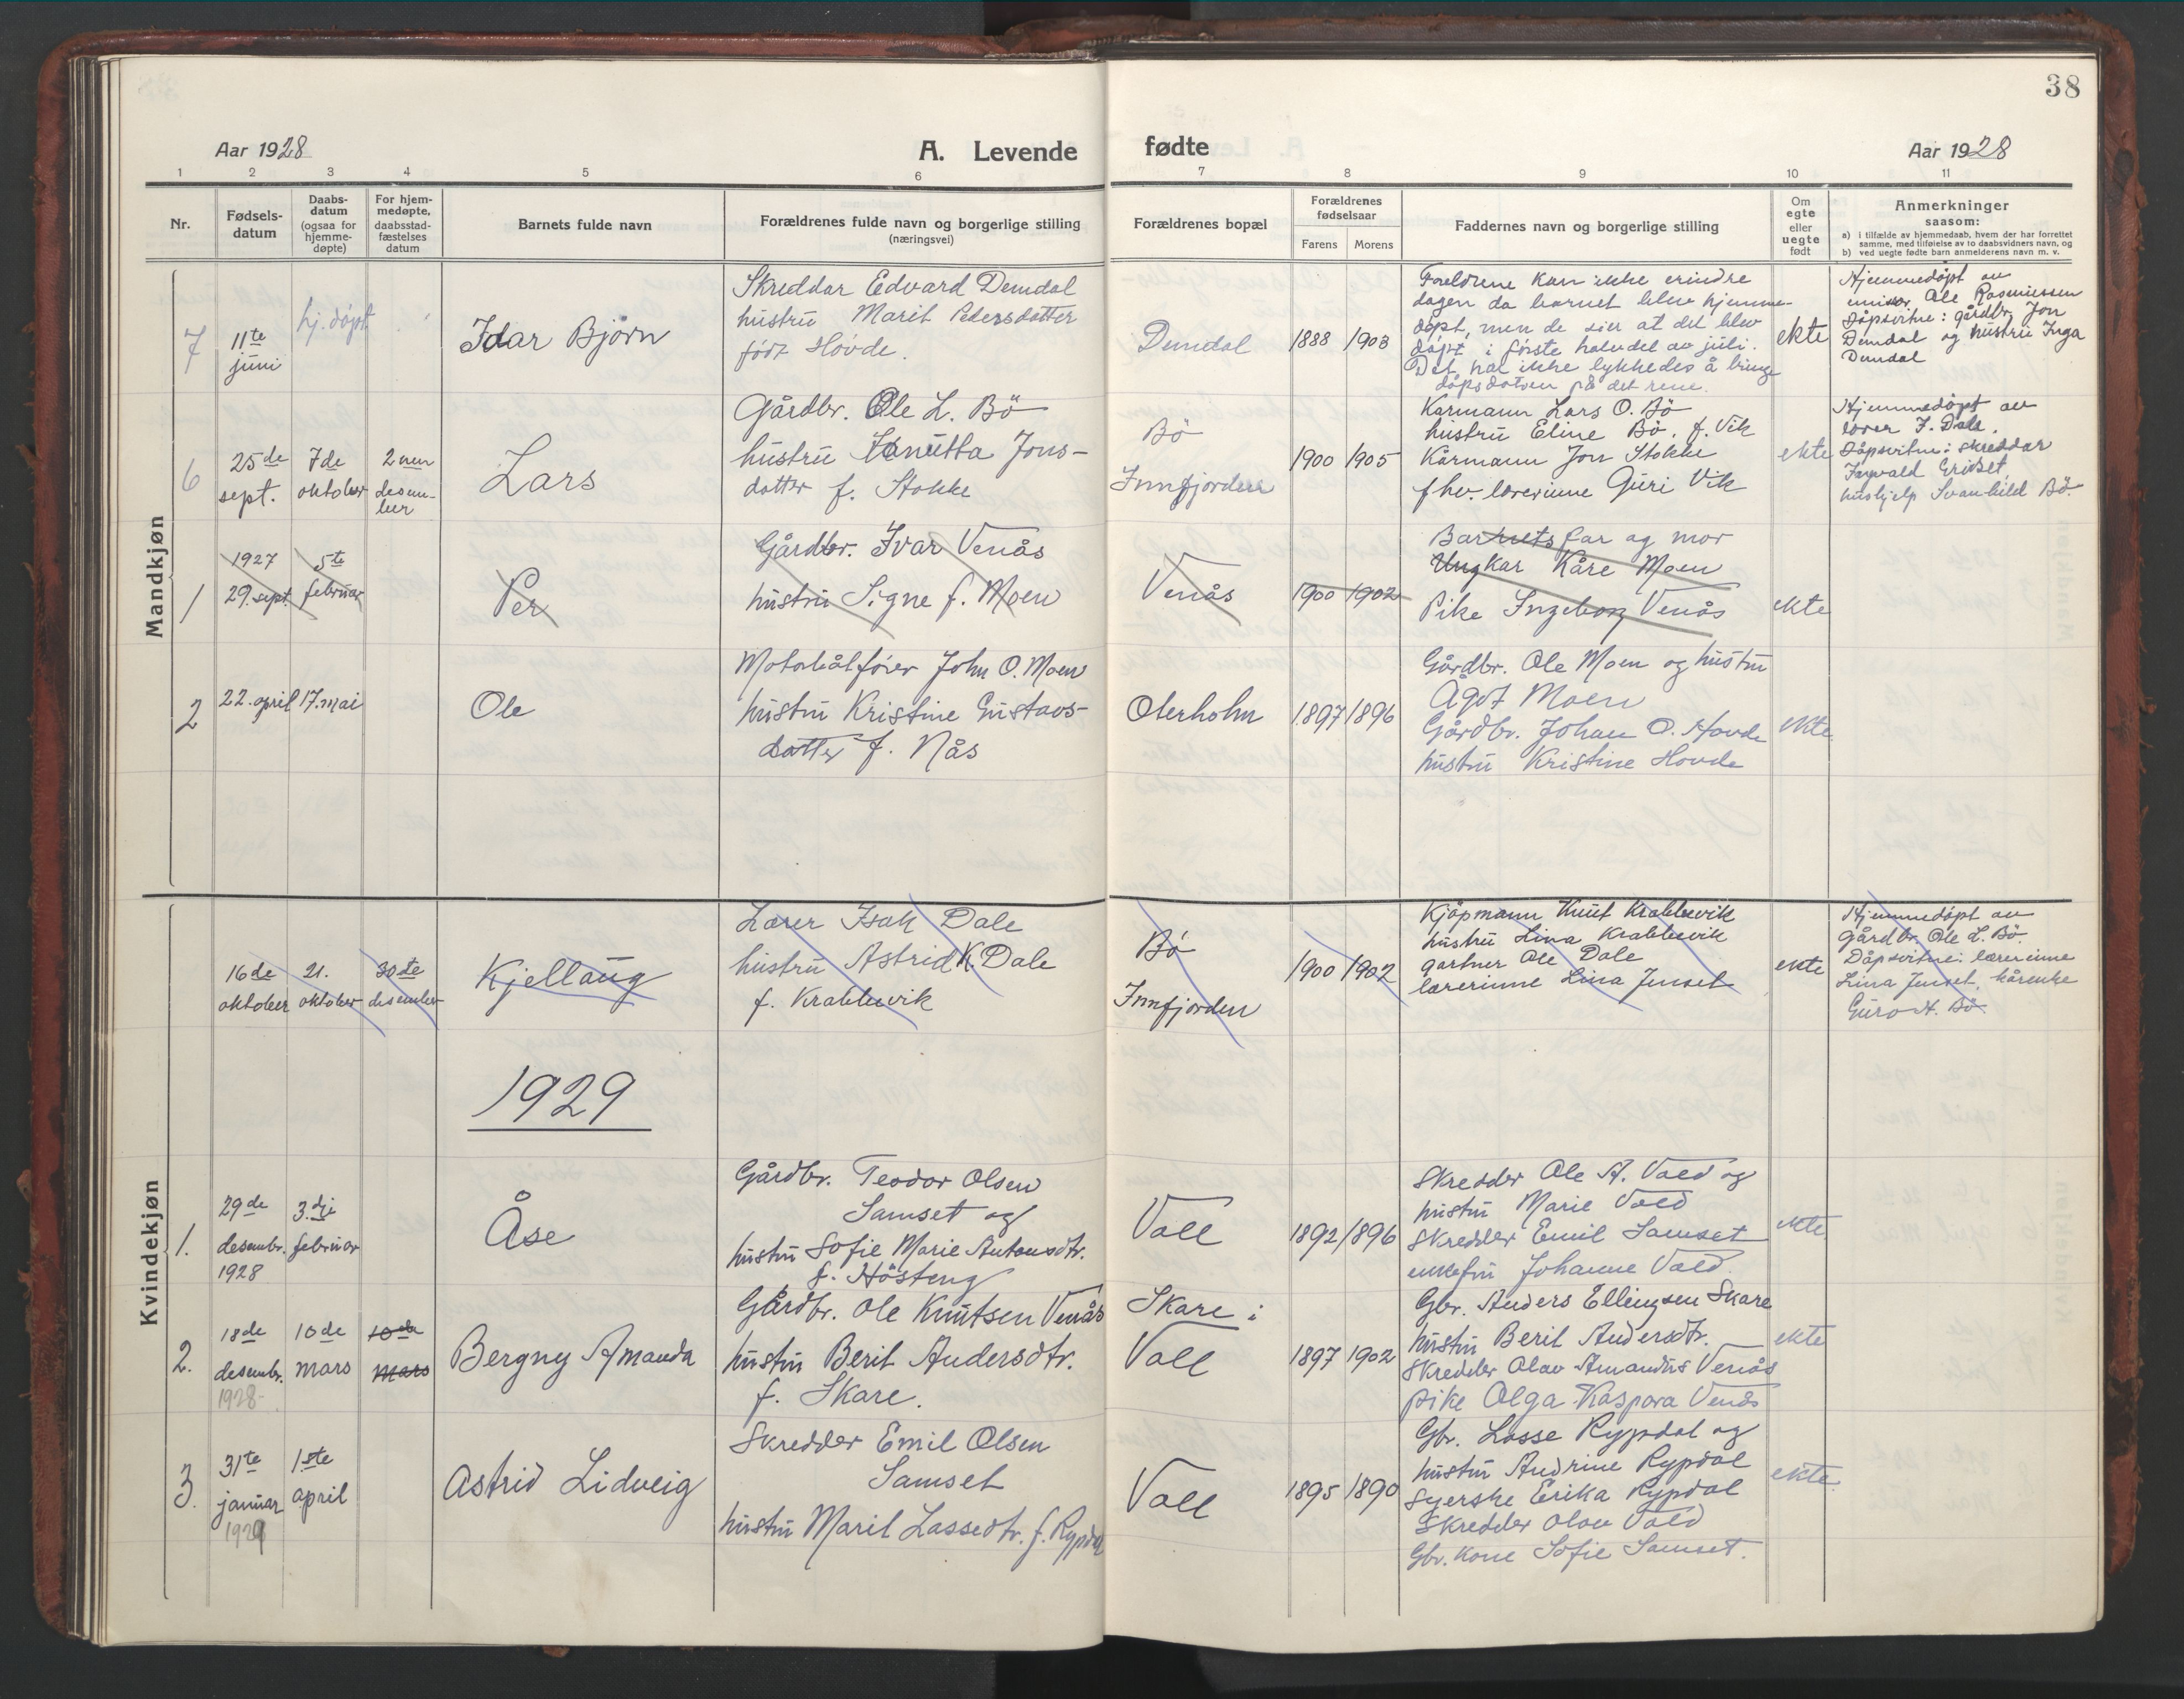 38
Aar 1928
A. Levende fødte
Aar 1928
1 2 3 4 5 6 7 8 9 10 11
Nr.
Fødsels-
datum
Daabs-
datum
(ogsaa for
hjemme-
døpte)
For hjem-
medøpte,
daabsstad-
fæstelses
datum
Barnets fulde navn
Forældrenes fulde navn og borgerlige stilling
(næringsvei)
Forældrenes bopæl
Forældrenes
fødselsaar
Farens Morens
Faddernes navn og borgerlige stilling
Om
egte
eller
uegte
født
Anmerkninger
saasom:
a) i tilfælde av hjemmedaab, hvem der har forrettet
samme, med tilføielse av to daabsvidners navn, og
b) ved uegte fødte barn anmelderens navn m. v.
Mandkjøn
7
11te
juni
hj. døpt
Idar Bjørn
Skreddar Edvard Demdal
hustru Marit Pedersdatter
født Hovde.
Demdal
1888 1903
Foreldrene kan ikke erindre
dagen da barnet blev hjemme-
døpt, men de sier at det blev
døpt i første halvdel av juli.
Det har ikke lykkedes å bringe
dåpsdatoen på det rene.
ekte
Hjemmedøpt av
Ole Rasmussen
Dåpsvitne: gårdbr. Jon
Demdal og hustru Inga
Demdal
6
25de
sept.
7de
oktober
2nen
desem-
ber
Lars
Gårdbr. Ole L. Bö
hustru Jons-
datter f. Stokke
Bö
Innfjorden
1900 1905
Kårmann Lars O. Bö
hustru Eline Bö, f. Vik
Kårmann Jon Stokke
fhv. lærerinne Guri Vik
ekte
Hjemmedøpt av
lærer I. Dale.
Dåpsvitne: skreddar
Ingvald Gridset,
hushjelp Svanhild Bö.
1
1927
29. sept.
5te
februar
Per
Gårdbr. Ivar Venås
hustru Signe f. Moen
Venås
1900 1902
Barnets far og mor
Ungkar Kåre Moen
Pike Ingeborg Venås
ekte
2
22. april
17. mai
Ole
Motorbåtfører John O. Moen
hustru Kristine Gustavs-
datter f. Nås
Oterholm
1897 1896
Gårdbr. Ole Moen og hustru
Ågot Moen
Gårdbr. Johan O. Hovde
hustru Kristine Hovde
ekte
Kvindekjøn
16de
oktober
21.
oktober
30te
desember
Kjellaug
Lærer Isak Dale
hustru Astrid K. Dale
f. Krabbevik
Bö
Innfjorden
1900 1902
Kjöpmann Knut Krabbevik
hustru Lina Krabbevik
gartner Ole Dale
lærerinne Lina Jenset
ekte
Hjemmedøpt av
gårdbr. Ole L. Bö.
Dåpsvitne: lærerinne
Lina Jenset, kårenke
Guro H. Bö.
1929
1.
29de
desembr.
1928
3.dje
februar
Åse
Gårdbr. Teodor Olsen
Samset og
hustru Sofie Marie Antonsdtr.
f. Hösteng
Voll
1892 1896
Skredder Ole A. Vold og
hustru Marie Vold
Skredder Emil Samset
enkefru Johanne Vold.
ekte
2.
18de
desembr.
1928
10de
mars
10de
mars
Bergny Amanda
Gårdbr. Ole Knutsen Venås
hustru Berit Andersdtr.
f. Skare.
Skare i
Voll
1897 1902
Gbr. Anders Ellingsen Skare
hustru Berit Andersdtr.
Skredder Olav Amandus Venås
pike Olga Kaspara Venås
ekte
3.
31te
januar
1929
1.ste
april
Astrid Lidveig
Skredder Emil Olsen
Samset
hustru Marit Lassedtr. f. Rypdal
Voll
1895 1890
Gbr. Lasse Rypdal og
hustru Andrine Rypdal
Syerske Erika Rypdal
Skredder Olav Vold
Gbr. kone Sofie Samset.
ekte